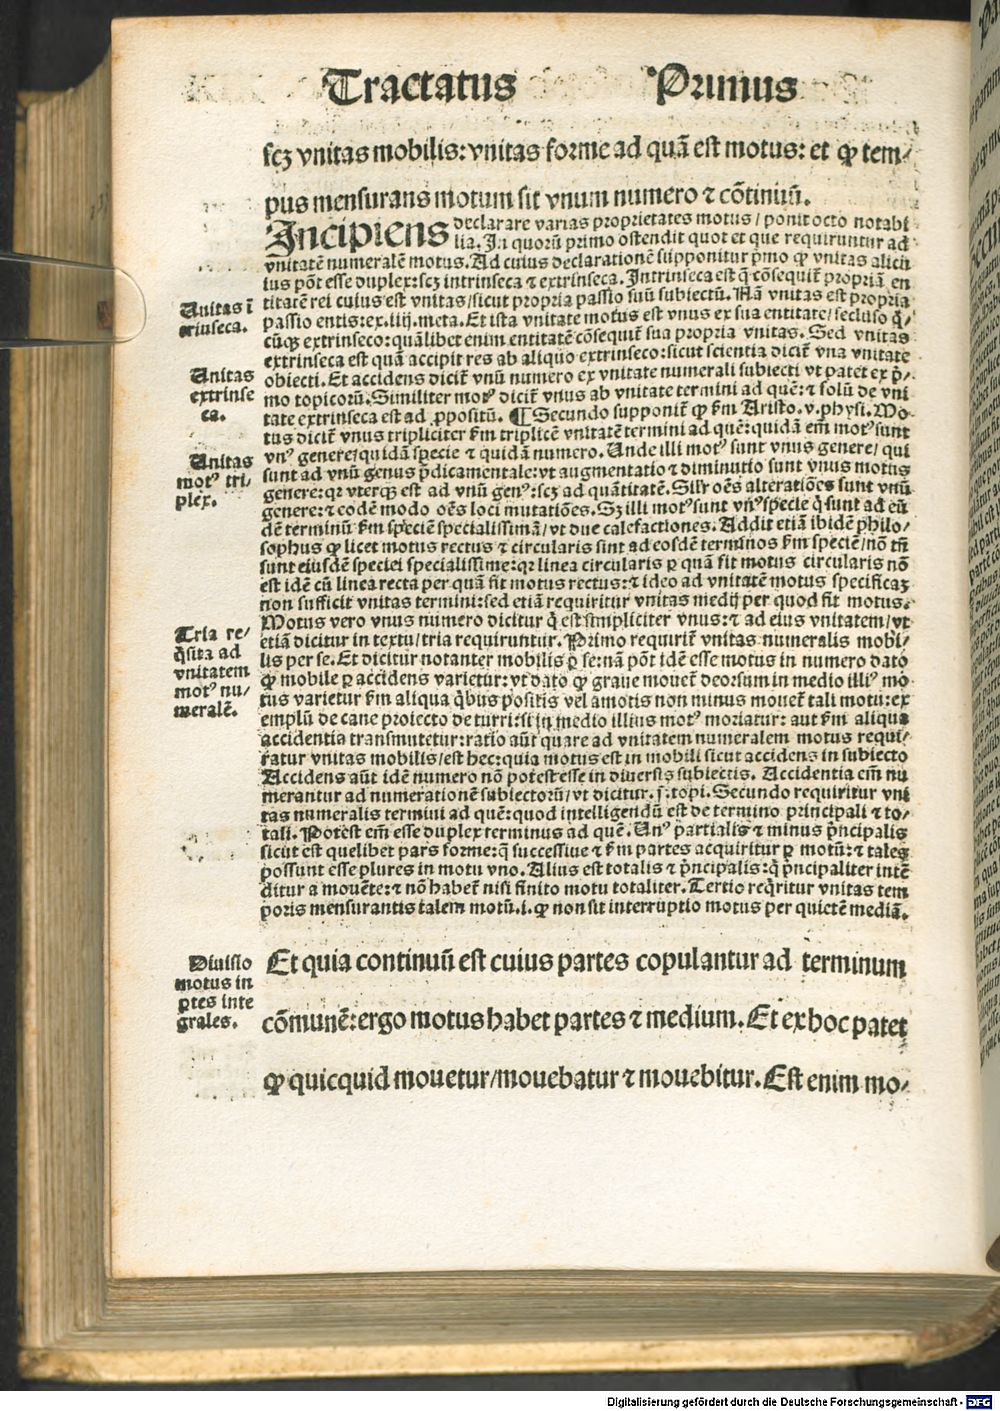 Tractatus Primus
scꝫ vnitas mobilis: vnitas forme ad quã est motus: et ꝙ tem/
pus mensurans motum sit vnum numero ⁊ cõtinuũ.
Incipiens declarare varias proprietates motus/ ponit octo notabi
lia. In quorũ primo ostendit quot et que requiruntur ad
vnitatẽ numeralẽ motus. Ad cuius declarationẽ supponitur p̃mo ꝙ vnitas alicu
ius põt esse duplex: scꝫ intrinseca ⁊ extrinseca. Intrinseca est q̃ cõsequit᷑ propriã en
titatẽ rei cuius est vnitas/ sicut propria passio suũ subiectũ. Nã vnitas est propria
passio entis: ex .iiij. meta. Et ista vnitate motus est vnus ex sua entitate/ secluso q̃/
cũqꝫ extrinseco: quãlibet enim entitatẽ cõsequit᷑ sua propria vnitas. Sed vnitas
extrinseca est quã accipit res ab aliquo extrinseco: sicut scientia dicit᷑ vna vnitate
obiecti. Et accidens dicit᷑ vnũ numero ex vnitate numerali subiecti vt patet ex p̃/
mo topicorũ. Similiter motꝰ dicit᷑ vnus ab vnitate termini ad quẽ: ⁊ solũ de vni
tate extrinseca est ad ꝓpositũ. ¶ Secundo supponit᷑ ꝙ ẜm Aristo. v. physi. Mo
tus dicit᷑ vnus tripliciter ẜm triplicẽ vnitatẽ termini ad quẽ: quidã em̃ motꝰ sunt
vnꝰ genere/ quidã specie ⁊ quidã numero. Unde illi motꝰ sunt vnus genere/ qui
sunt ad vnũ genus p̃dicamentale: vt augmentatio ⁊ diminutio sunt vnus motus
genere: qꝛ vterqꝫ est ad vnũ genꝰ: scꝫ ad quãtitatẽ. Sil'r oẽs alteratiões sunt vnũ
genere: ⁊ eodẽ modo oẽs loci mutatiões. Sꝫ illi motꝰ sunt vnꝰ specie q̃ sunt ad eũ
dẽ terminũ ẜm speciẽ specialissimã/ vt due calefactiones. Addit etiã ibidẽ philo/
sophus ꝙ licet motus rectus ⁊ circularis sint ad eosdẽ terminos ẜm speciẽ/ nõ tñ
sunt eiusdẽ speciei specialissime: qꝛ linea circularis ꝑ quã fit motus circularis nõ
est idẽ cũ linea recta per quã fit motus rectus: ⁊ ideo ad vnitatẽ motus specificaꝫ
non sufficit vnitas termini: sed etiã requiritur vnitas medij per quod fit motus.
Motus vero vnus numero dicitur q̃ est simpliciter vnus: ⁊ ad eius vnitatem/ vt
etiã dicitur in textu/ tria requiruntur. Primo requirit᷑ vnitas numeralis mobi/
lis per se. Et dicitur notanter mobilis ꝑ se: nã põt idẽ esse motus in numero dato
ꝙ mobile ꝑ accidens varietur: vt dato ꝙ graue mouet᷑ deorsum in medio illiꝰ mo
tus varietur ẜm aliqua q̃bus positis vel amotis non minus mouet᷑ tali motu: ex
emplũ de cane proiecto de turri: si in medio illius motꝰ moriatur: aut ẜm aliqua
accidentia transmutetur: ratio aũt quare ad vnitatem numeralem motus requi/
ratur vnitas mobilis/ est hec: quia motus est in mobili sicut accidens in subiecto
Accidens aũt idẽ numero nõ potest esse in diuersis subiectis. Accidentia em̃ nu
merantur ad numerationẽ subiectorũ/ vt dicitur .j. topi. Secundo requiritur vni
tas numeralis termini ad quẽ: quod intelligendũ est de termino principali ⁊ to/
tali. Potest em̃ esse duplex terminus ad quẽ. Unꝰ partialis ⁊ minus p̃ncipalis
sicut est quelibet pars forme: q̃ successiue ⁊ ẜm partes acquiritur ꝑ motũ: ⁊ tales
possunt esse plures in motu vno. Alius est totalis ⁊ p̃ncipalis: q̃ p̃ncipaliter intẽ
ditur a mouẽte: ⁊ nõ habet᷑ nisi finito motu totaliter. Tertio req̃ritur vnitas tem
poris mensurantis talem motũ. i. ꝙ non sit interruptio motus per quietẽ mediã.
Et quia continuũ est cuius partes copulantur ad terminum
cõmunẽ: ergo motus habet partes ⁊ medium. Et ex hoc patet
ꝙ quicquid mouetur/ mouebatur ⁊ mouebitur. Est enim mo/
Unitas ĩ
triuseca.
Unitas
extrinse
ca.
Unitas
motꝰ tri/
plex.
Tria re/
q̃sita ad
vnitatem
motꝰ nu/
meralẽ.
Diuisio
motus in
ꝑtes inte
grales.
Digitalisierung gefördert durch die Deutsche Forschungsgemeinschaft - DFG